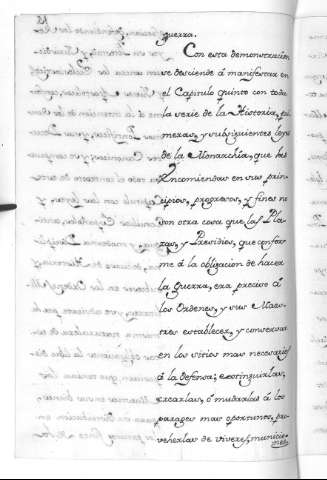 guerra.
Con esta demonstracion
se desciende á manifestar en
el Capitulo quinto con toda
la serie de la Historia, pri
meras, y subsiguientes leyes
de la Monarchia, que las
Encomiendas en sus prin
cipios, progresos, y fines no
son otra cosa que las Pla
zas, y Presidios, que confor
me á la obligacion de hacer
la Guerra, era preciso á
los Ordenes, y sus Maes
tres establecer, y conservar
en los sitios mas necesarios
á la Defensa; extinguirlas,
trocarlas, ó mudarlas á los
parages mas oportunos, pro
veherlas de viveres, municio
nes,